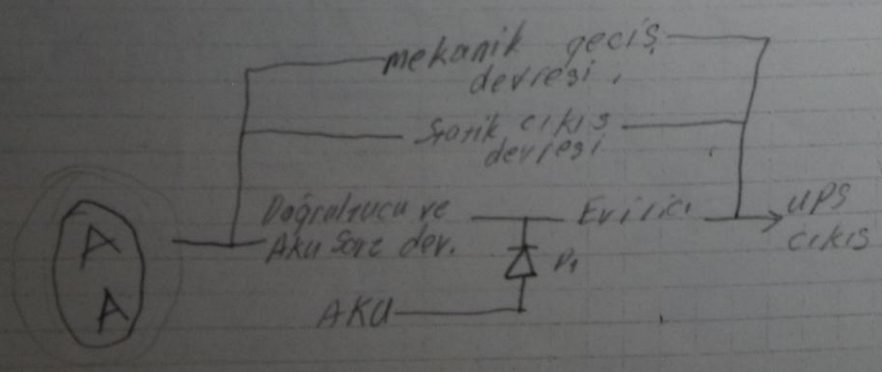 mekanik geciş
devresi
Statik cıkış
devresi
Doğrultucu ve
Aku Sarz dev.
Evirici
UPS
cıkıs
A
A
D1
AKU